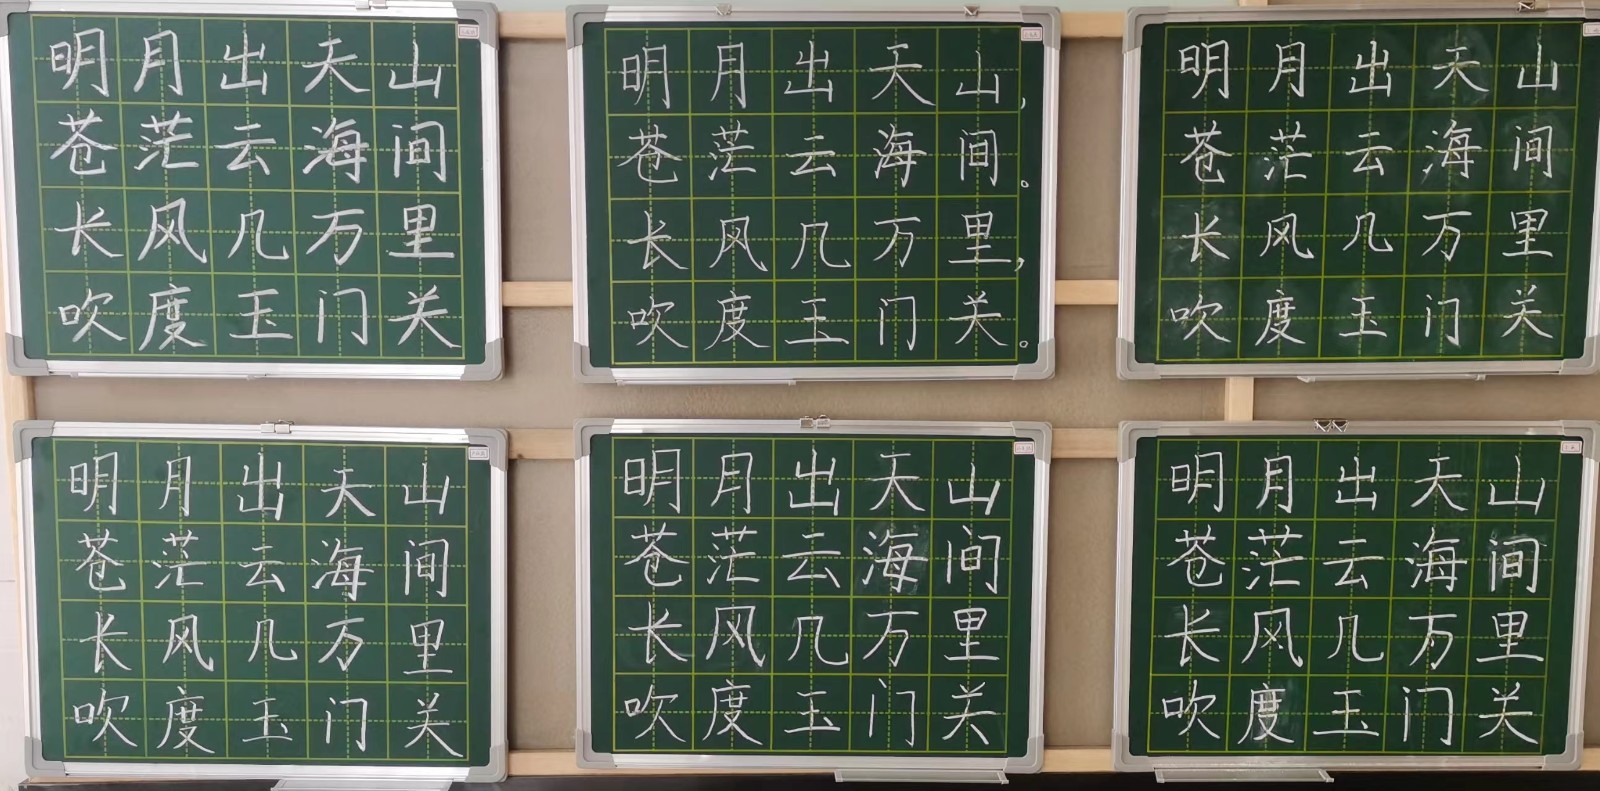 明月出天山
苍茫云海间
长风几万里
吹度玉门关
明月出天山，
苍茫云海间。
长风几万里，
吹度玉门关。
明月出天山
苍茫云海间
长风几万里
吹度玉门关
明月出天山
苍茫云海间
长风几万里
吹度玉门关
明月出天山
苍茫云海间
长风几万里
吹度玉门关
明月出天山
苍茫云海间
长风几万里
吹度玉门关